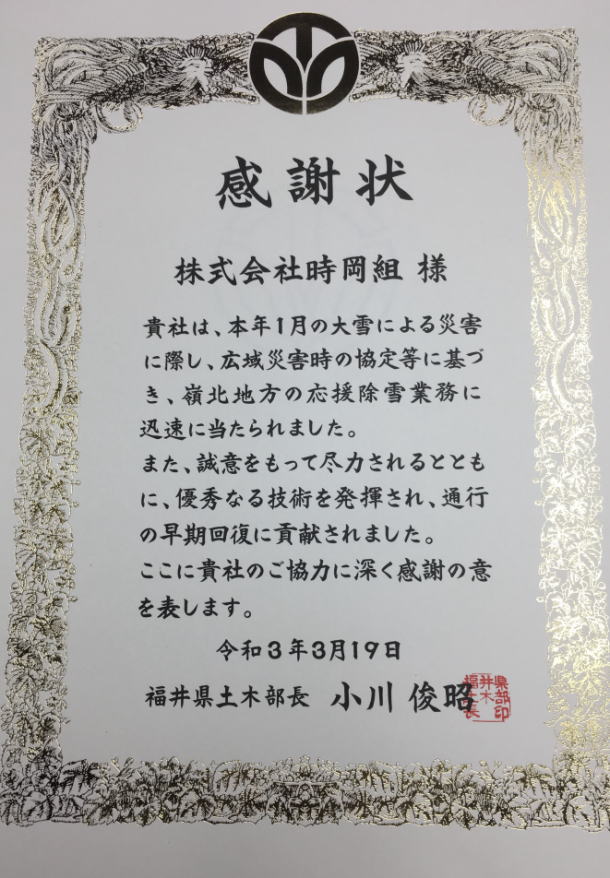 感謝状
株式会社時岡組 様
貴社は、本年1月の大雪による災害
に際し、広域災害時の協定等に基づ
き、嶺北地方の応援除雪業務に
迅速に当たられました。
また、誠意をもって尽力されるととも
に、優秀なる技術を発揮され、通行
の早期回復に貢献されました。
ここに貴社のご協力に深く感謝の意
を表します。
令和3年3月19日
福井県土木部長 小川 俊昭
福井県土木部長印